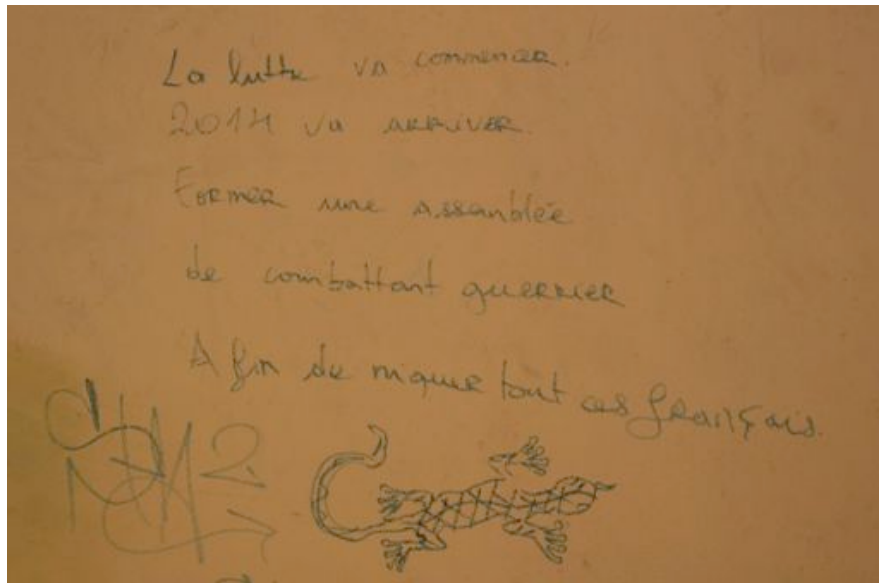 La lutte va commencer.
2014 va arriver.
Former une assemblée
de combattant guerrier
A fin de niquer tout ces français.